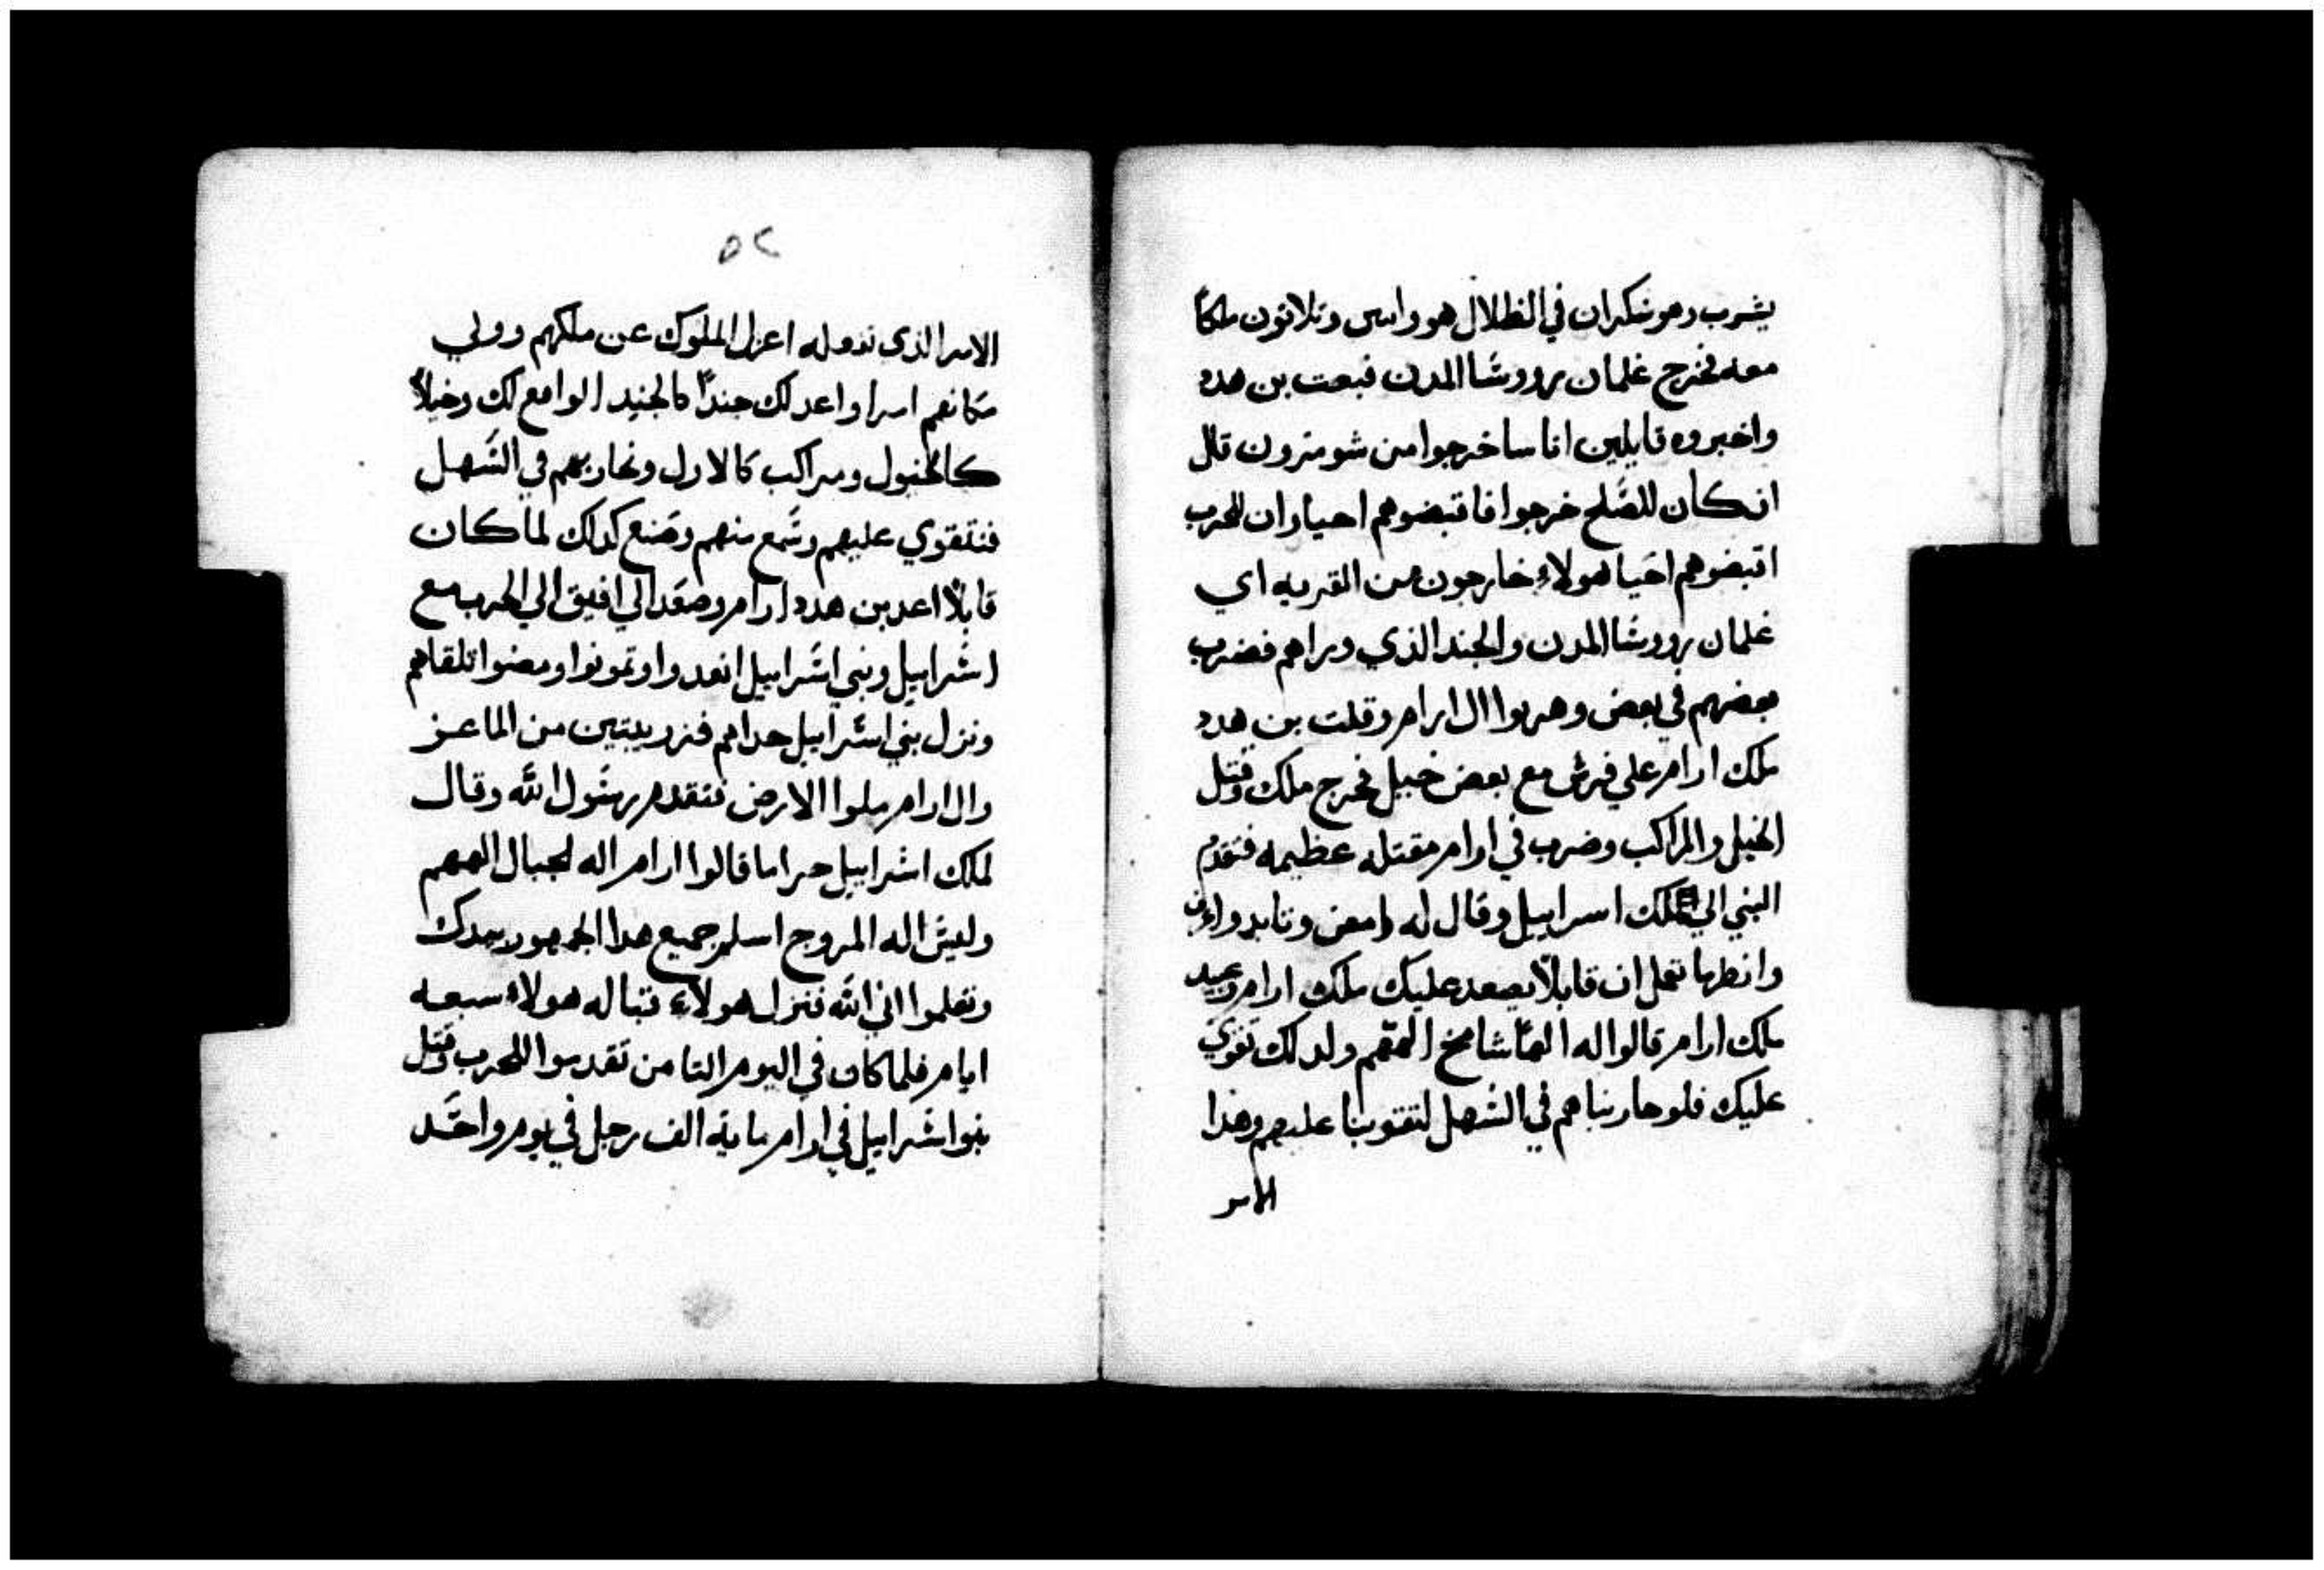 يشرب وهو سكران في الظلال هو واسى وتلاتون ملكا
معه فخرج غلمان رووسا المدن فبعت بن هدد
واخبروه قايلين اناسا خرجوا من شومرون قال
ان كان للصلح خرجوا فاقبضوهم احيا وان للحرب
اقبضوهم احيا هولاء خارجون من القريه اي
غلمان رووسا المدن والجند الذي وراهم فضرب
بعضهم في بعض وهربوا ال ارام وفلت بن هدد
ملك ارام علي فرس مع بعض خيل فخرج ملك وقتل
الخيل والمراكب وضرب في ارام مقتله عظيمه فتقدم
النبي الي ملك اسراييل وقال له امض وتايد واعرف
وانظر ما تعمل ان قابلا يصعد عليك ملك ارام وعبيد
ملك ارام قالوا له الها شامخ الههم ولدلك تقوي
عليك فلو حاربناهم في السهل لتقوينا عليهم وهذا
الامر
٥٢
الامر الذي ندوله اعزل الملوك عن ملكهم وولي
مكانهم امرا واعد لك جندا كالجنيد الواقع لك وخيلا
كالخيول ومراكب كالاول ونحاربهم في السهل
فنتقوي عليهم وسمع منهم وصنع كدلك لما كان
قابلا اعد بن هدد ارام وصعد الي افيق الي الحرب مع
اسراييل وبني اسراييل انعدوا وتمونوا ومضوا تلقاهم
ونزل بني اسراييل حداهم فزريبتين من الماعز
وال ارام ملوا الارض فتقدم رسول الله وقال
لملك اسراييل جراما قالوا ارام اله لجبال الههم
وليس اله المروج اسلم جميع هدا الجمهور بيدك
وتعلموا اني الله فنزل هولاء قباله هولاء سبعه
ايام فلما كان في اليوم التامن تقدموا للحرب وقتل
بنوا اسراييل في ارام ماية الف رجل في يوم واحد